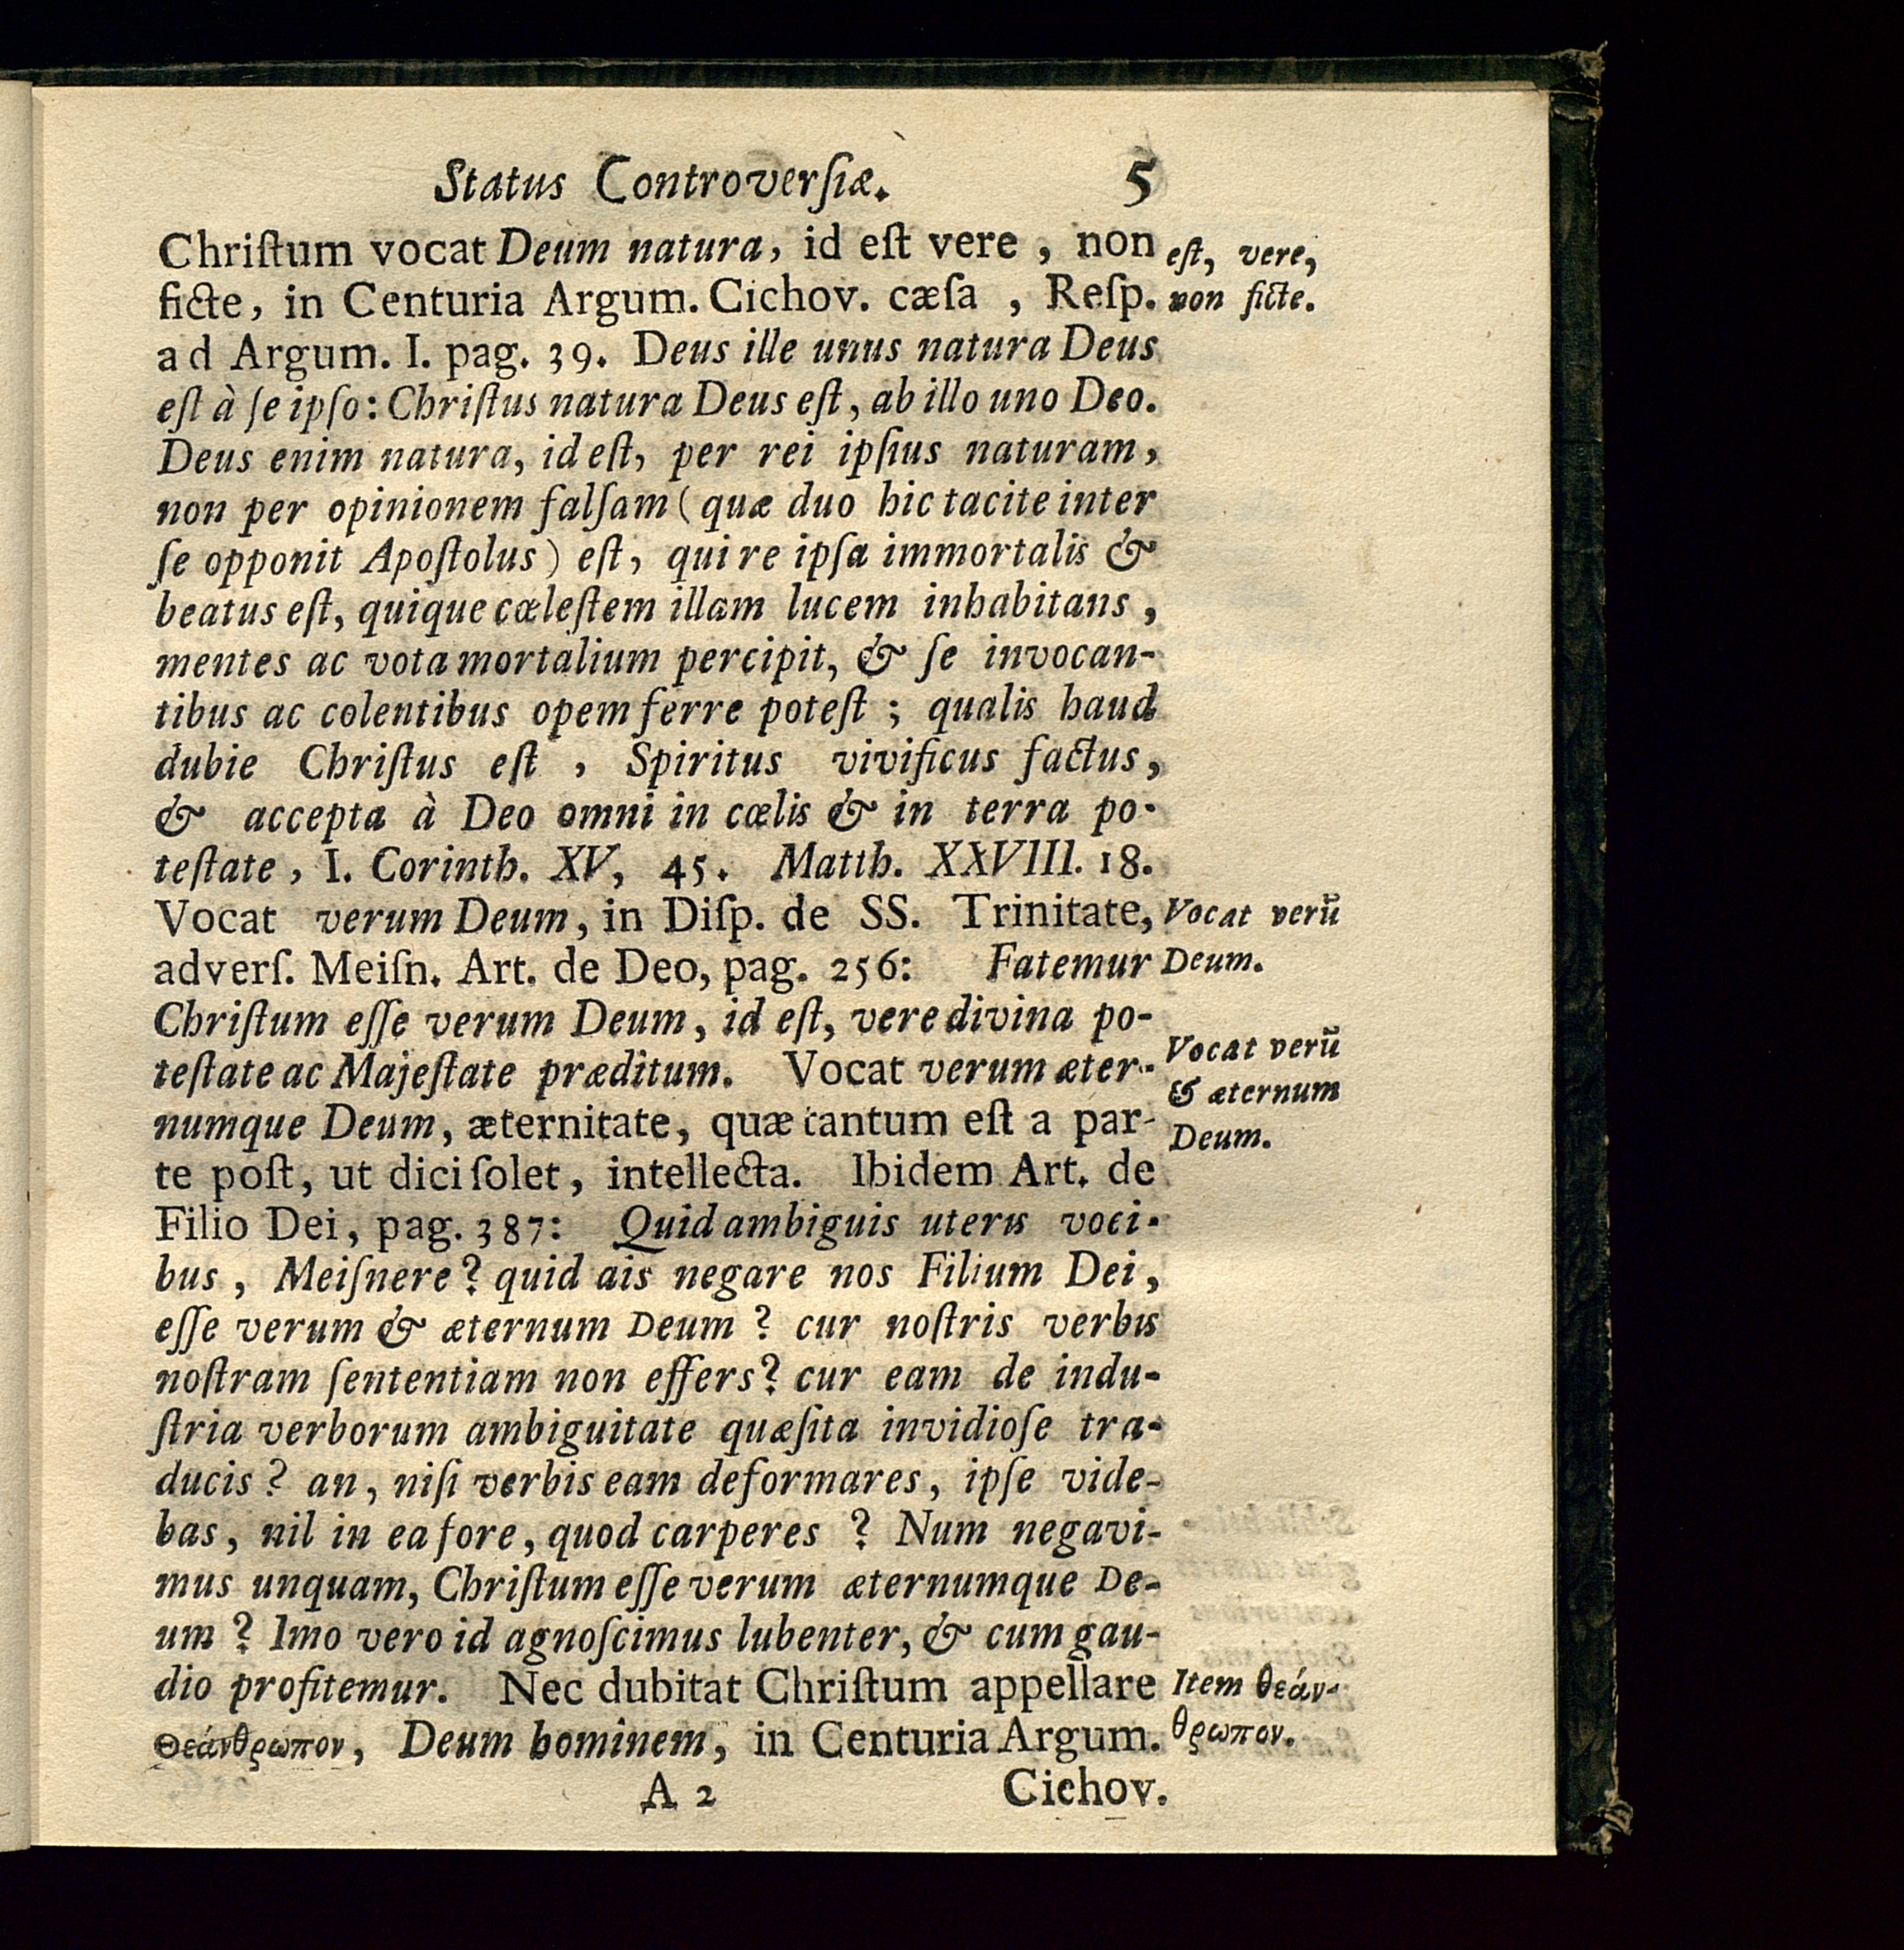 Status Controverſiæ. 5
Chriſtum vocat Deum natura, id eſt vere, non
ficte, in Centuria Argum. Cichov. cæſa, Reſp.
ad Argum. I. pag. 39. Deus ille unus natura Deus
eſt à ſe ipſo: Chriſtus natura Deus eſt, ab illo uno Deo.
Deus enim natura, id eſt, per rei ipſius naturam,
non per opinionem falſam (quæ duo hic tacite inter
ſe opponit Apoſtolus) eſt, qui re ipſa immortalis &
beatus eſt, quique cœleſtem illam lucem inhabitans,
mentes ac vota mortalium percipit, & ſe invocan-
tibus ac colentibus opem ferre poteſt; qualis haud
dubie Chriſtus eſt, Spiritus vivificus factus,
& accepta à Deo omni in cœlis & in terra po-
teſtate, I. Corinth. XV, 45. Matth. XXVIII. 18.
Vocat verum Deum, in Diſp. de SS. Trinitate,
adverſ. Meiſn. Art. de Deo, pag. 256: Fatemur
Chriſtum eſſe verum Deum, id eſt, vere divina po-
teſtate ac Majeſtate præditum. Vocat verum æter-
numque Deum, æternitate, quæ tantum eſt a par-
te poſt, ut dici ſolet, intellecta. Ibidem Art. de
Filio Dei, pag. 387: Quid ambiguis uteris voci-
bus, Meiſnere? quid ais negare nos Filium Dei,
eſſe verum & æternum Deum? cur noſtris verbis
noſtram ſententiam non effers? cur eam de indu-
ſtria verborum ambiguitate quæſita invidioſe tra-
ducis? an, niſi verbis eam deformares, ipſe vide-
bas, nil in ea fore, quod carperes? Num negavi-
mus unquam, Chriſtum eſſe verum æternumque De-
um? Imo vero id agnoſcimus lubenter, & cum gau-
dio profitemur. Nec dubitat Chriſtum appellare
Θεάνθρωπον, Deum hominem, in Centuria Argum.
A 2 Cichov.
eſt, vere,
non ficte.
Vocat verū
Deum.
Vocat verū
& æternum
Deum.
Item θεάν-
θρωπον.